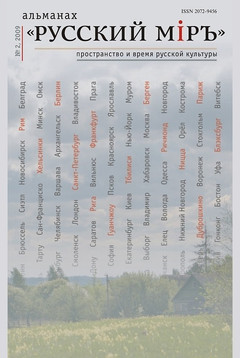 альманах
ISSN 2072-9456
№ 2, 2009
«РУССКИЙ МIРЪ»
пространство и время русской культуры
Брюссель Сиэтл Новосибирск Рим Белград
Тарту Сан-Франциско Хельсинки Минск Омск
Челябинск Варшава Архангельск Берлин
Смоленск Лондон Санкт-Петербург Владивосток
Саратов Рига Вильнюс Франкфурт Прага
София Гуанчжоу Псков Красноярск Ярославль
Екатеринбург Киев Тбилиси Нью-Йорк Муром
Выборг Владимир Хабаровск Москва Берген
Елец Вологда Одесса Новгород
Нижний Новгород Ницца Орёл Кострома
Воронеж Стокгольм Париж
Гонконг Бостон Уфа Витебск